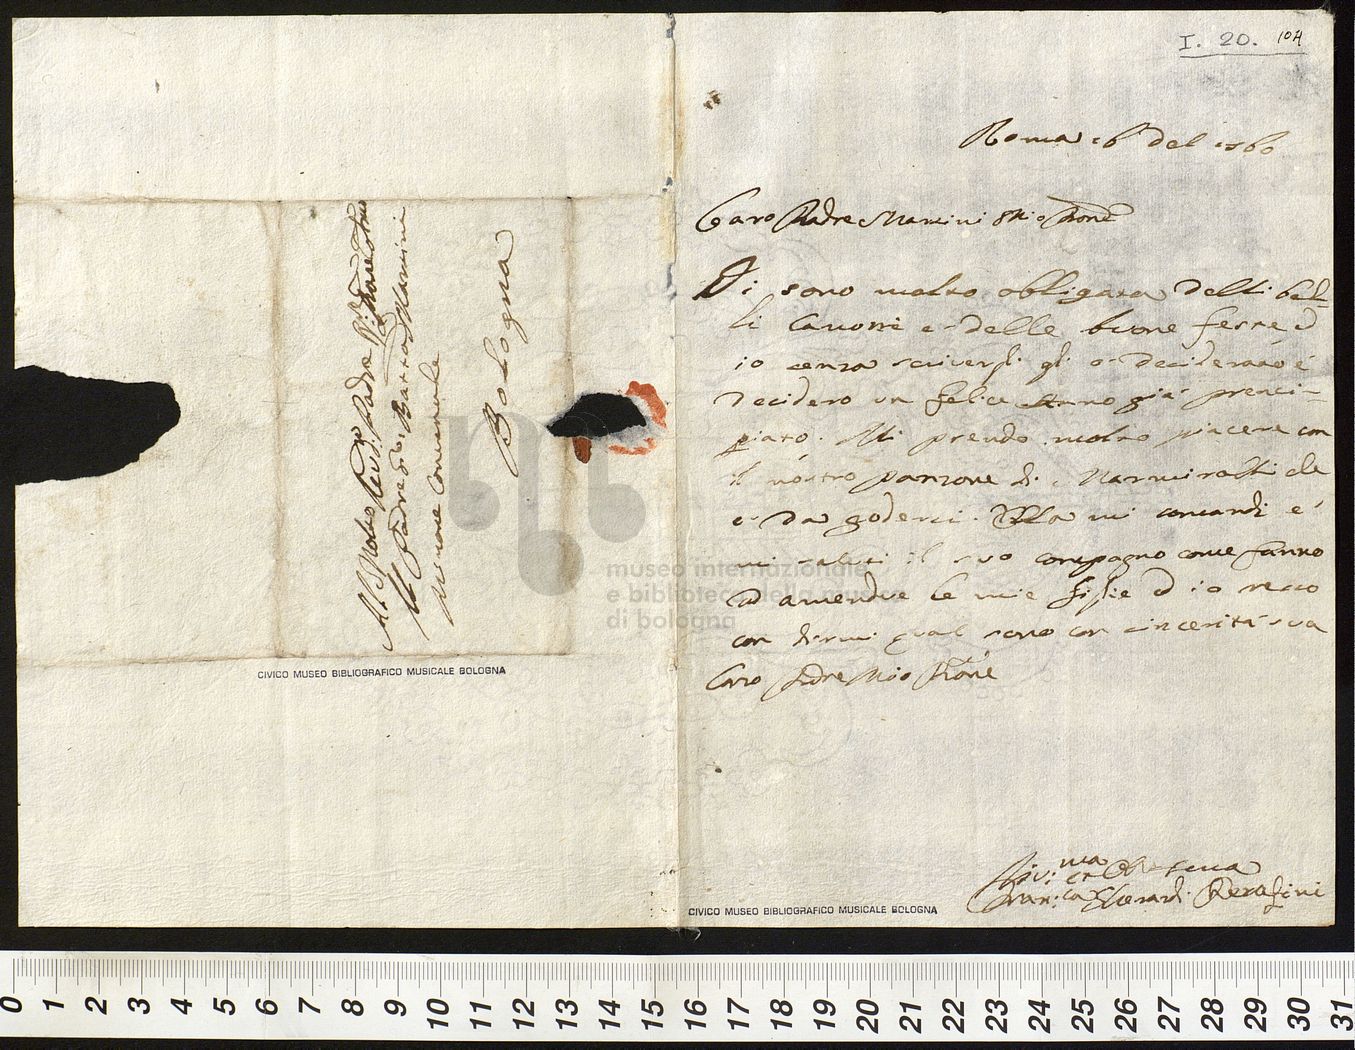 I. 20. 104
Roma 16 del 1760
Caro Padre Martini Mio Pron̄e
Li sono molto obbligata delli bel-
li Cavorri e delle buone feste ed
io senza scriversli gli ò deciderato é
decidero un felice Anno già prenci-
piato. Mi prendo molto piacere con
il nostro panzone di Marmiralti che
é da godersi. Ella mi comandi é
mi saluti il suo compagno come fanno
ad amendue le mie figlie ed io resto
con dirmi qual sono con cincerità sua
Caro Padre Mio Pron̄e
Div:ma et Ob Serva
Fran:ca Elerardi Serafini
Al Molto Rev:do Padre
Il Padre Gio: Battista Martini
Minore Conventuale
Bologna
CIVICO MUSEO BIBLIOGRAFICO MUSICALE BOLOGNA
CIVICO MUSEO BIBLIOGRAFICO MUSICALE BOLOGNA
museo internazionale
e biblioteca della musica
di bologna
0 1 2 3 4 5 6 7 8 9 10 11 12 13 14 15 16 17 18 19 20 21 22 23 24 25 26 27 28 29 30 31